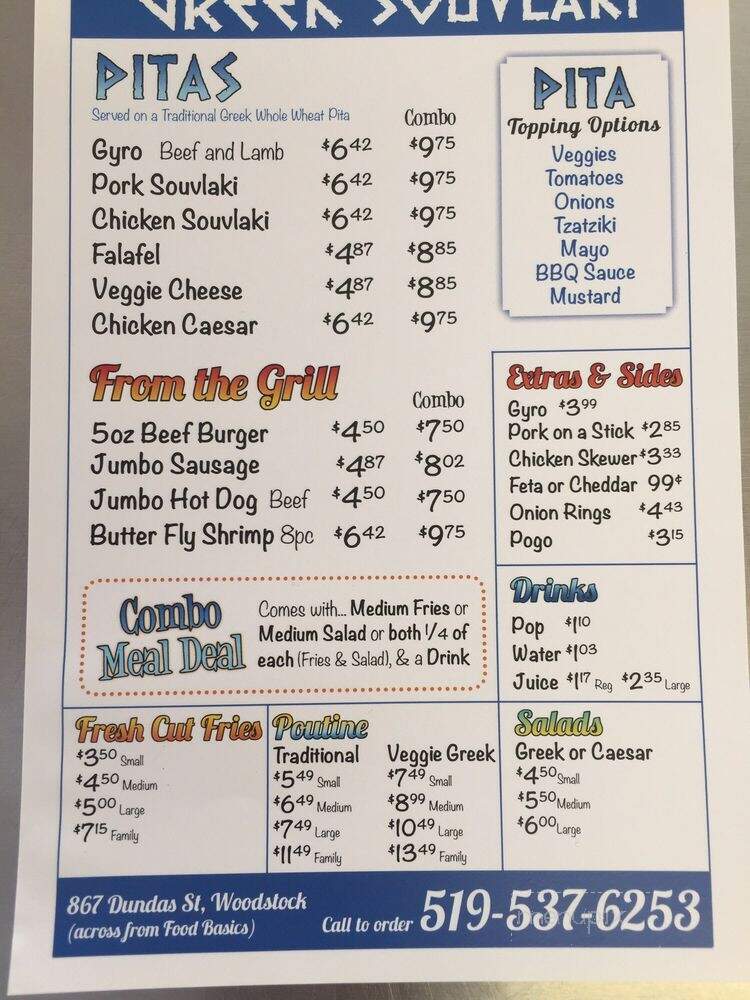 GREEK SOUVLAKI
PITAS
Served on a Traditional Greek Whole Wheat Pita
Combo
Gyro Beef and Lamb $6.42 $9.75
Pork Souvlaki $6.42 $9.75
Chicken Souvlaki $6.42 $9.75
Falafel $4.87 $8.85
Veggie Cheese $4.87 $8.85
Chicken Caesar $6.42 $9.75
PITA
Topping Options
Veggies
Tomatoes
Onions
Tzatziki
Mayo
BBQ Sauce
Mustard
From the Grill
Combo
5oz Beef Burger $4.50 $7.50
Jumbo Sausage $4.87 $8.02
Jumbo Hot Dog Beef $4.50 $7.50
Butter Fly Shrimp 8pc $6.42 $9.75
Extras & Sides
Gyro $3.99
Pork on a Stick $2.85
Chicken Skewer $3.33
Feta or Cheddar 99¢
Onion Rings $4.43
Pogo $3.15
Combo
Meal Deal
Comes with... Medium Fries or
Medium Salad or both 1/4 of
each (Fries & Salad), & a Drink
Drinks
Pop $1.10
Water $1.03
Juice $1.17 Reg $2.35 Large
Fresh Cut Fries
$3.50 Small
$4.50 Medium
$5.00 Large
$7.15 Family
Poutine
Traditional Veggie Greek
$5.49 Small $7.49 Small
$6.49 Medium $8.99 Medium
$7.49 Large $10.49 Large
$11.49 Family $13.49 Family
Salads
Greek or Caesar
$4.50 Small
$5.50 Medium
$6.00 Large
867 Dundas St, Woodstock
(across from Food Basics)
Call to order 519-537-6253